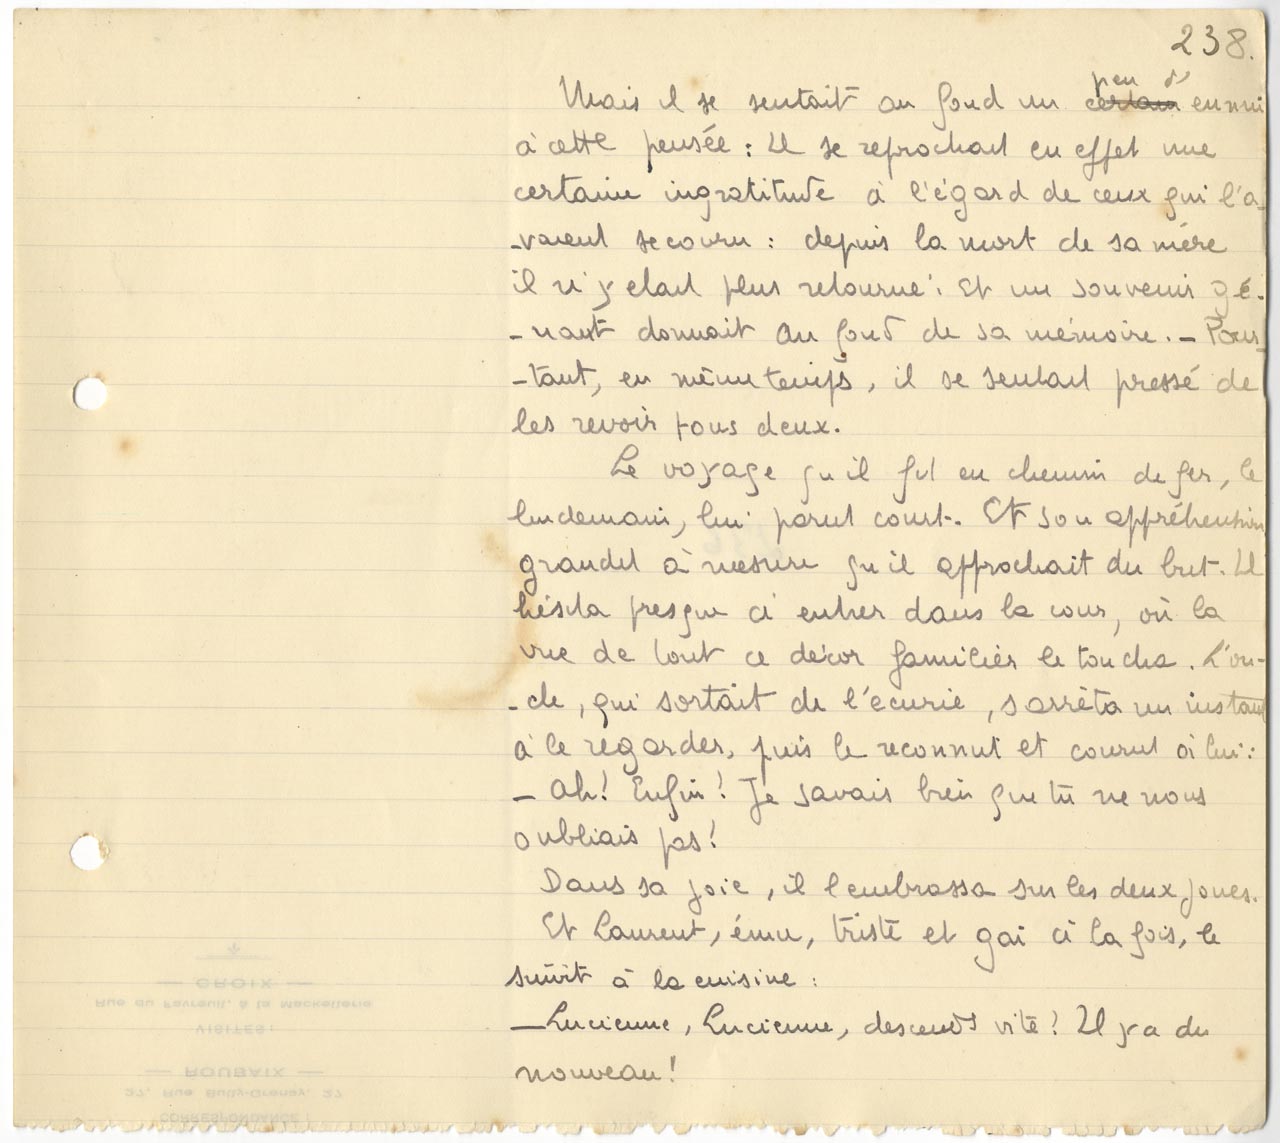 238.
Mais il se sentait au fond un peu d'ennui
à cette pensée : Il se reprochait en effet une
certaine ingratitude à l'égard de ceux qui l'a-
-vaient secouru : depuis la mort de sa mère
il n'y était plus retourné. Et un souvenir gê-
-nant dormait au fond de sa mémoire. - Pour-
-tant, en même temps, il se sentait pressé de
les revoir tous deux.
Le voyage qu'il fit en chemin de fer, le
lendemain, lui parut court. Et son appréhension
grandit à mesure qu'il approchait du but. Il
hésita presque à entrer dans la cour, où la
vue de tout ce décor familier le toucha. L'on-
-cle, qui sortait de l'écurie, s'arrêta un instant
à le regarder, puis le reconnut et courut à lui :
- Ah! Enfin! Je savais bien que tu ne nous
oubliais pas!
Dans sa joie, il l'embrassa sur les deux joues.
Et Laurent, ému, triste et gai à la fois, le
suivit à la cuisine :
- Lucienne, Lucienne, descends vite! Il y a du
nouveau!
CROIX
Rue du Favreuil, à la Mackellerie
VISITES :
ROUBAIX
27, Rue Bully-Grenay, 27
CORRESPONDANCE :